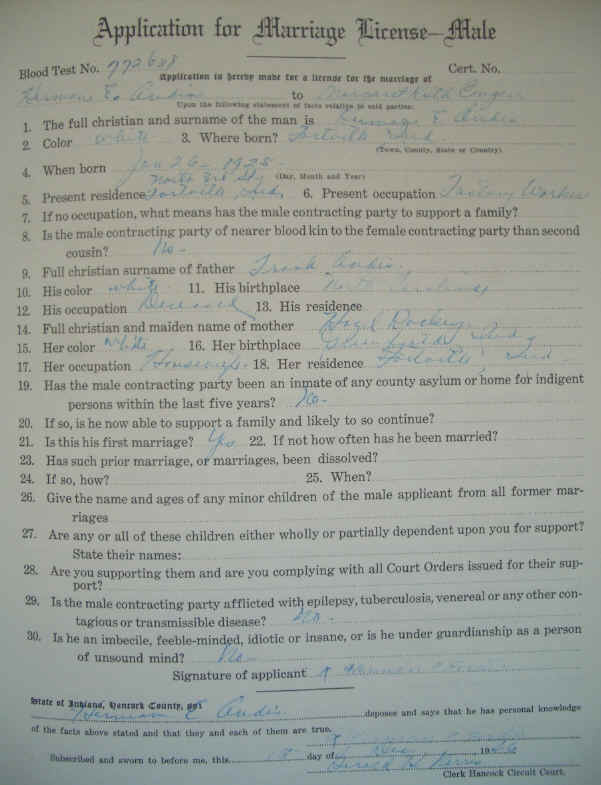 Application for Marriage License—Male
Blood Test No. 772688 Cert. No.
Application is hereby made for a license for the marriage of
Herman E. Andis to Margaret Ruth
Upon the following statement of facts relative to said parties:
1. The full christian and surname of the man is Herman E Andis
2. Color White 3. Where born? Fortville Ind.
(Town, County, State or Country)
4. When born Jan 26 - 1925
North St
(Day, Month and Year)
5. Present residence Fortville, Ind. 6. Present occupation Factory Worker
7. If no occupation, what means has the male contracting party to support a family?
8. Is the male contracting party of nearer blood kin to the female contracting party than second
cousin? No-
9. Full christian surname of father Frank Andis
10. His color white 11. His birthplace North Carolina
12. His occupation Deceased 13. His residence
14. Full christian and maiden name of mother
15. Her color White 16. Her birthplace Ind
17. Her occupation Housewife- 18. Her residence Fortville, Ind
19. Has the male contracting party been an inmate of any county asylum or home for indigent
persons within the last five years? No-
20. If so, is he now able to support a family and likely to so continue?
21. Is this his first marriage? Yes 22. If not how often has he been married?
23. Has such prior marriage, or marriages, been dissolved?
24. If so, how? 25. When?
26. Give the name and ages of any minor children of the male applicant from all former mar-
riages
27. Are any or all of these children either wholly or partially dependent upon you for support?
State their names:
28. Are you supporting them and are you complying with all Court Orders issued for their sup-
port?
29. Is the male contracting party afflicted with epilepsy, tuberculosis, venereal or any other con-
tagious or transmissible disease? No-
30. Is he an imbecile, feeble-minded, idiotic or insane, or is he under guardianship as a person
of unsound mind? No-
Signature of applicant x Herman E Andis
State of Indiana, Hancock County, ss:
Herman E Andis deposes and says that he has personal knowledge
of the facts above stated and that they and each of them are true.
x Herman E Andis
Subscribed and sworn to before me, this day of 19
Clerk Hancock Circuit Court.